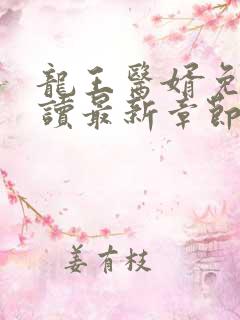 龍王醫婿免
讀最新章節
姜有枝